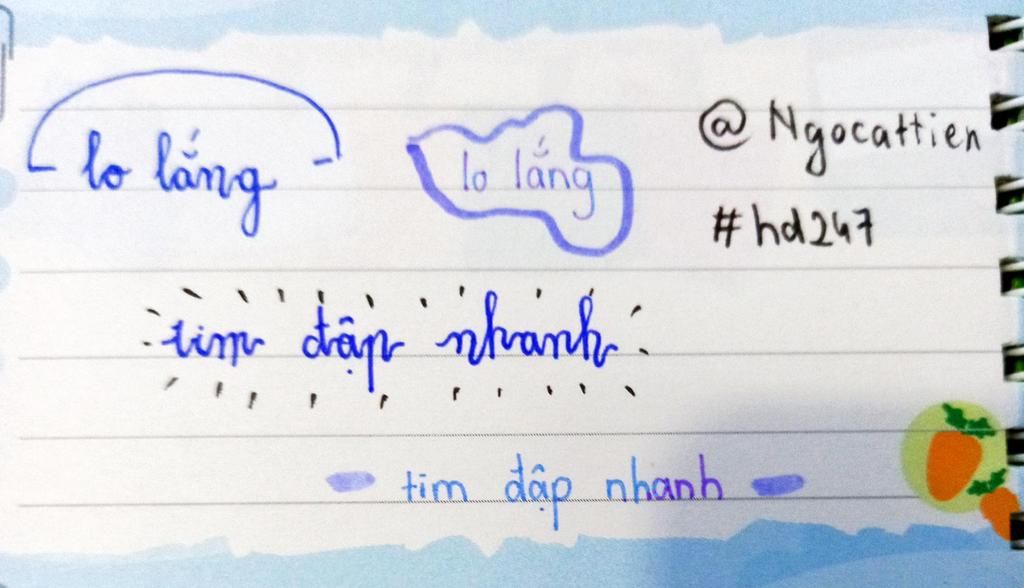 lo lắng lo lắng @Ngocattien
#hd247
tim đập nhanh
tim đập nhanh